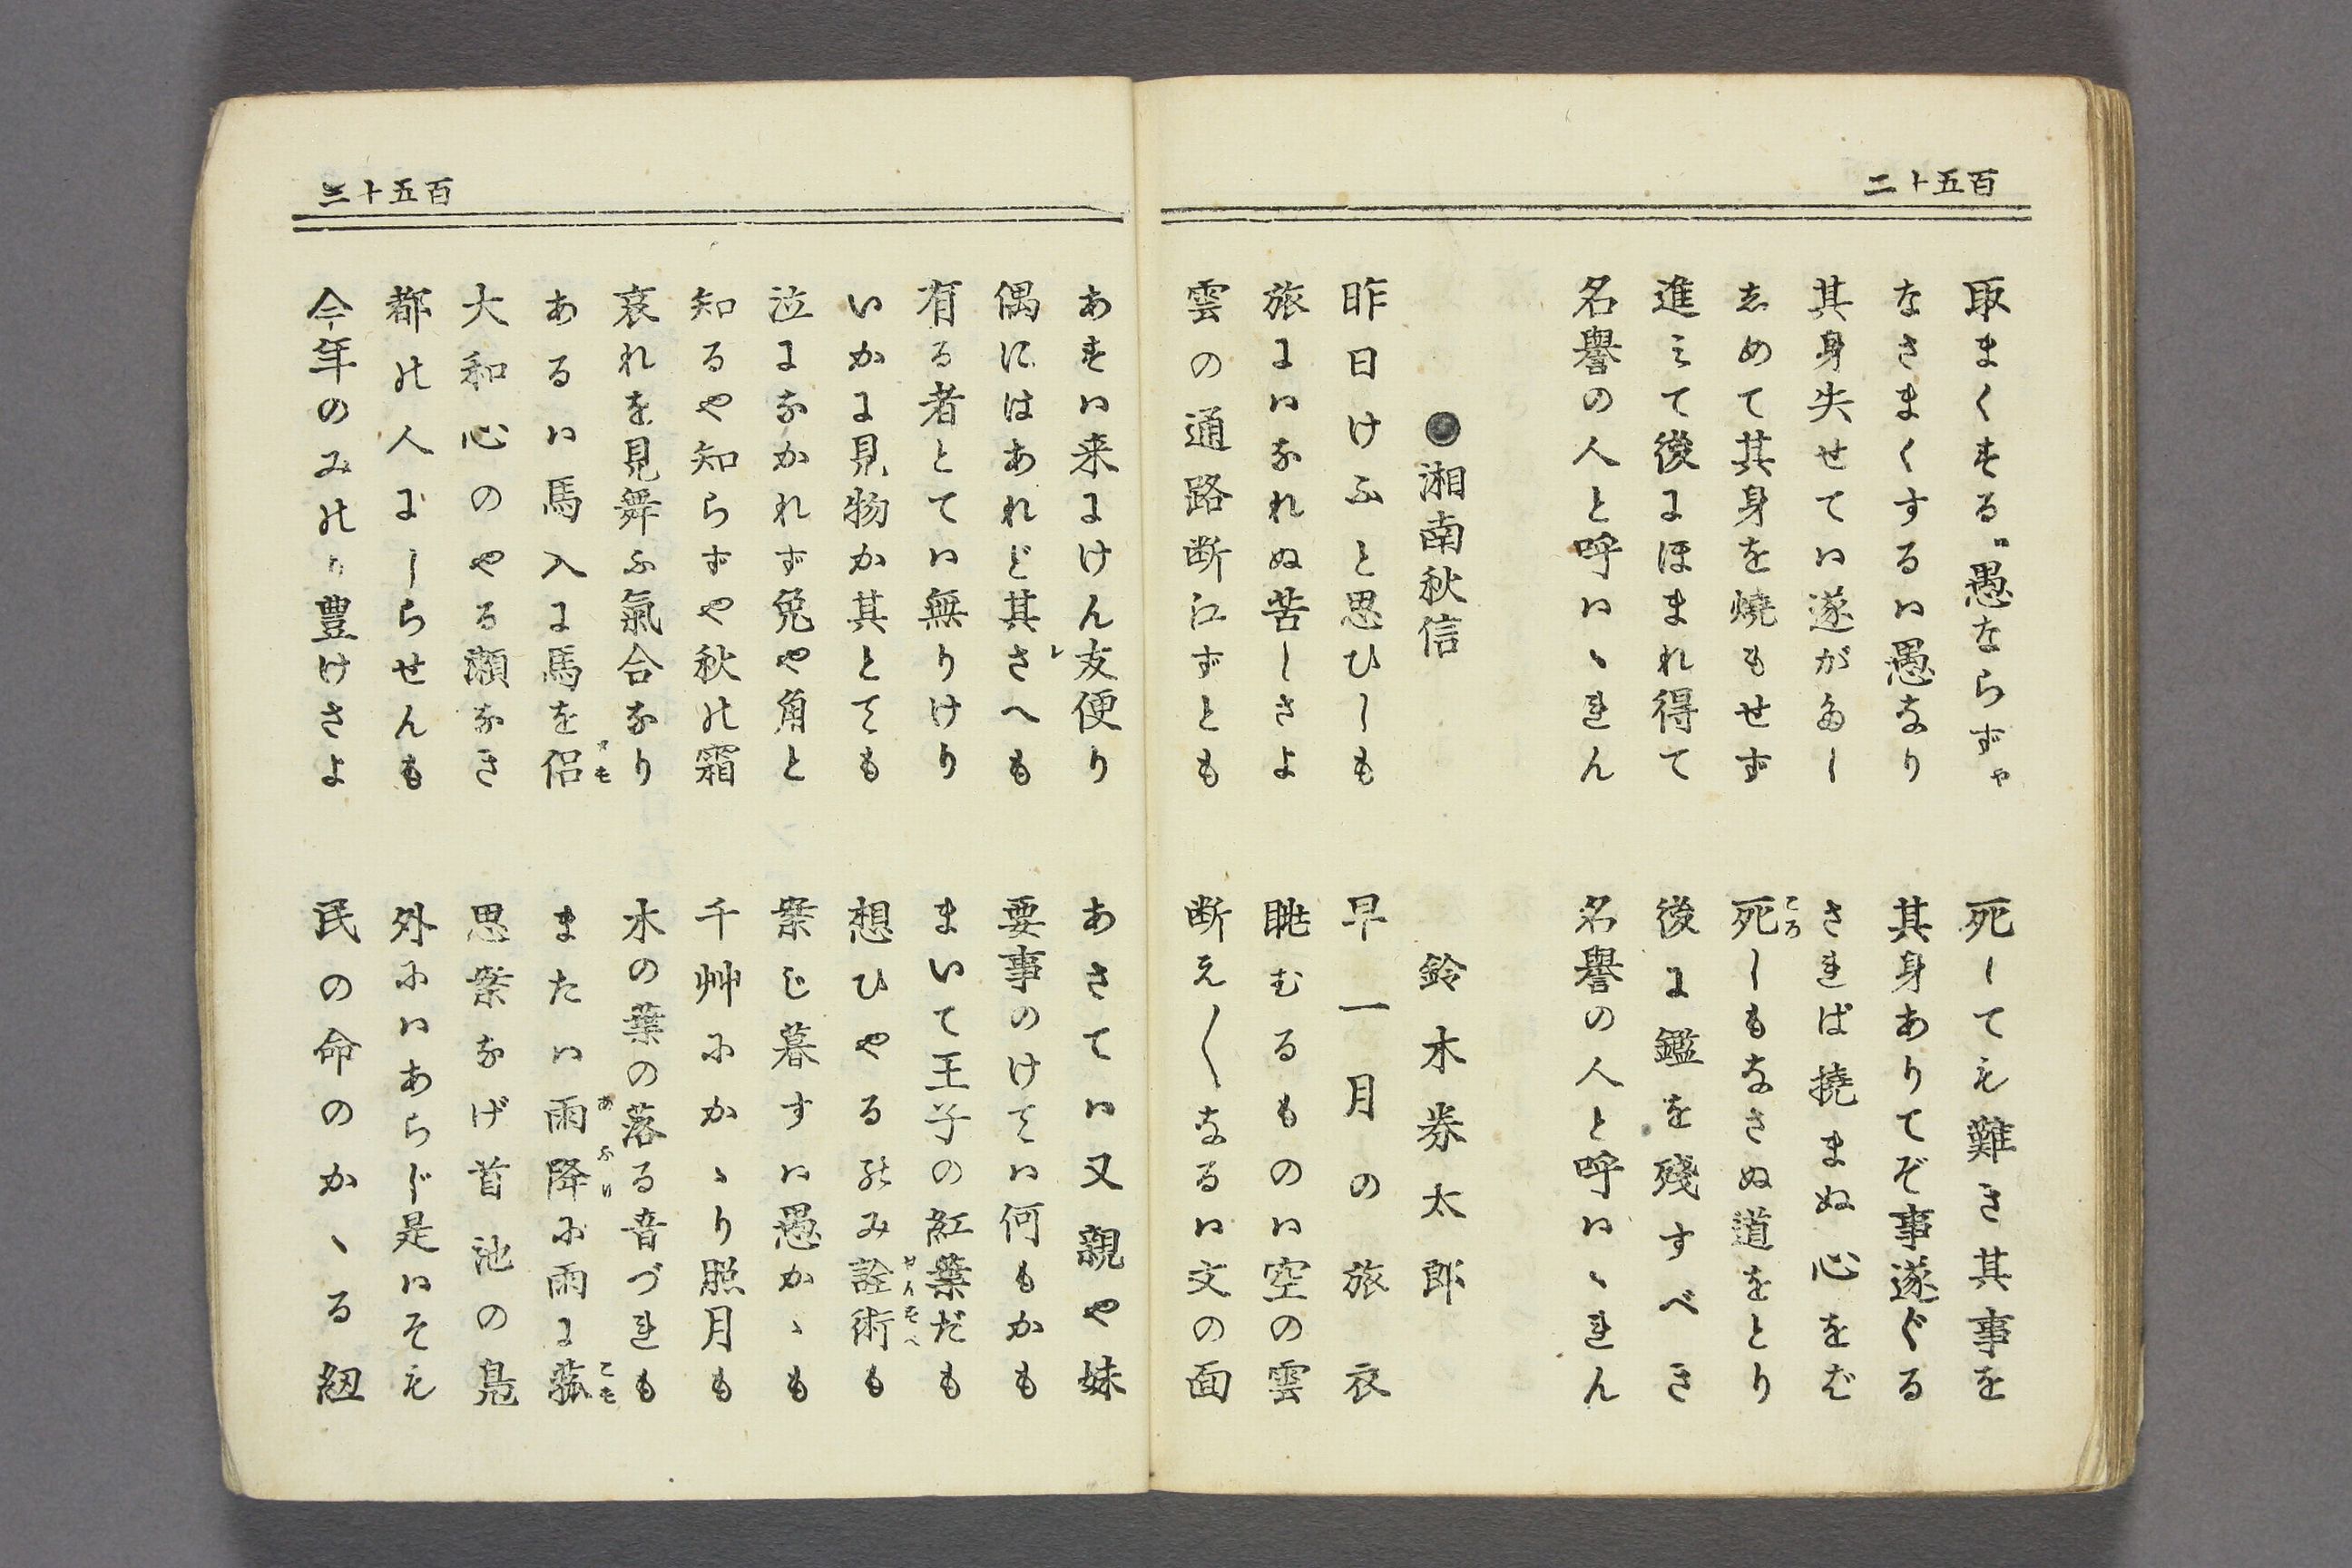 百五十二
取まくする愚ならずや　死しても難き其事を
なさまくするは愚なり　其身ありてぞ事遂ぐる
其身失せては遂がたし　されば撓まぬ心をば
しめて其身を焼もせず　死しもなさぬ道をとり
進みて後にほまれ得て　後に鑑を残すべき
名譽の人と呼はゝれん　名譽の人と呼はゝれん
●湘南秋信　鈴木券太郎
昨日けふと思ひしも　早一月の旅衣
旅にはなれぬ苦しさよ　眺むるものは空の雲
雲の通路断江ずとも　断え〳〵なるは文の面
百五十三
あすは来にけん友便り　あさては又親や妹
偶にはあれど其さへも　要事のけては何もかも
有る者とては無りけり　まいて王子の紅葉だも
いかに見物か其とても　想ひやるのみ詮術も
泣になかれず兔や角と　案じ暮すは愚かゝも
知るや知らずや秋の霜　千艸にかゝり照月も
哀れを見舞ふ氣合なり　木の葉の落る音づれも
あるは馬入に馬を侶　または雨降に雨に菰
大和心のやる瀬なき　思案なげ首池の鳧
都の人にしらせんも　外にはあらじ是はそも
今年のみのり豊けさよ　民の命のかゝる紐